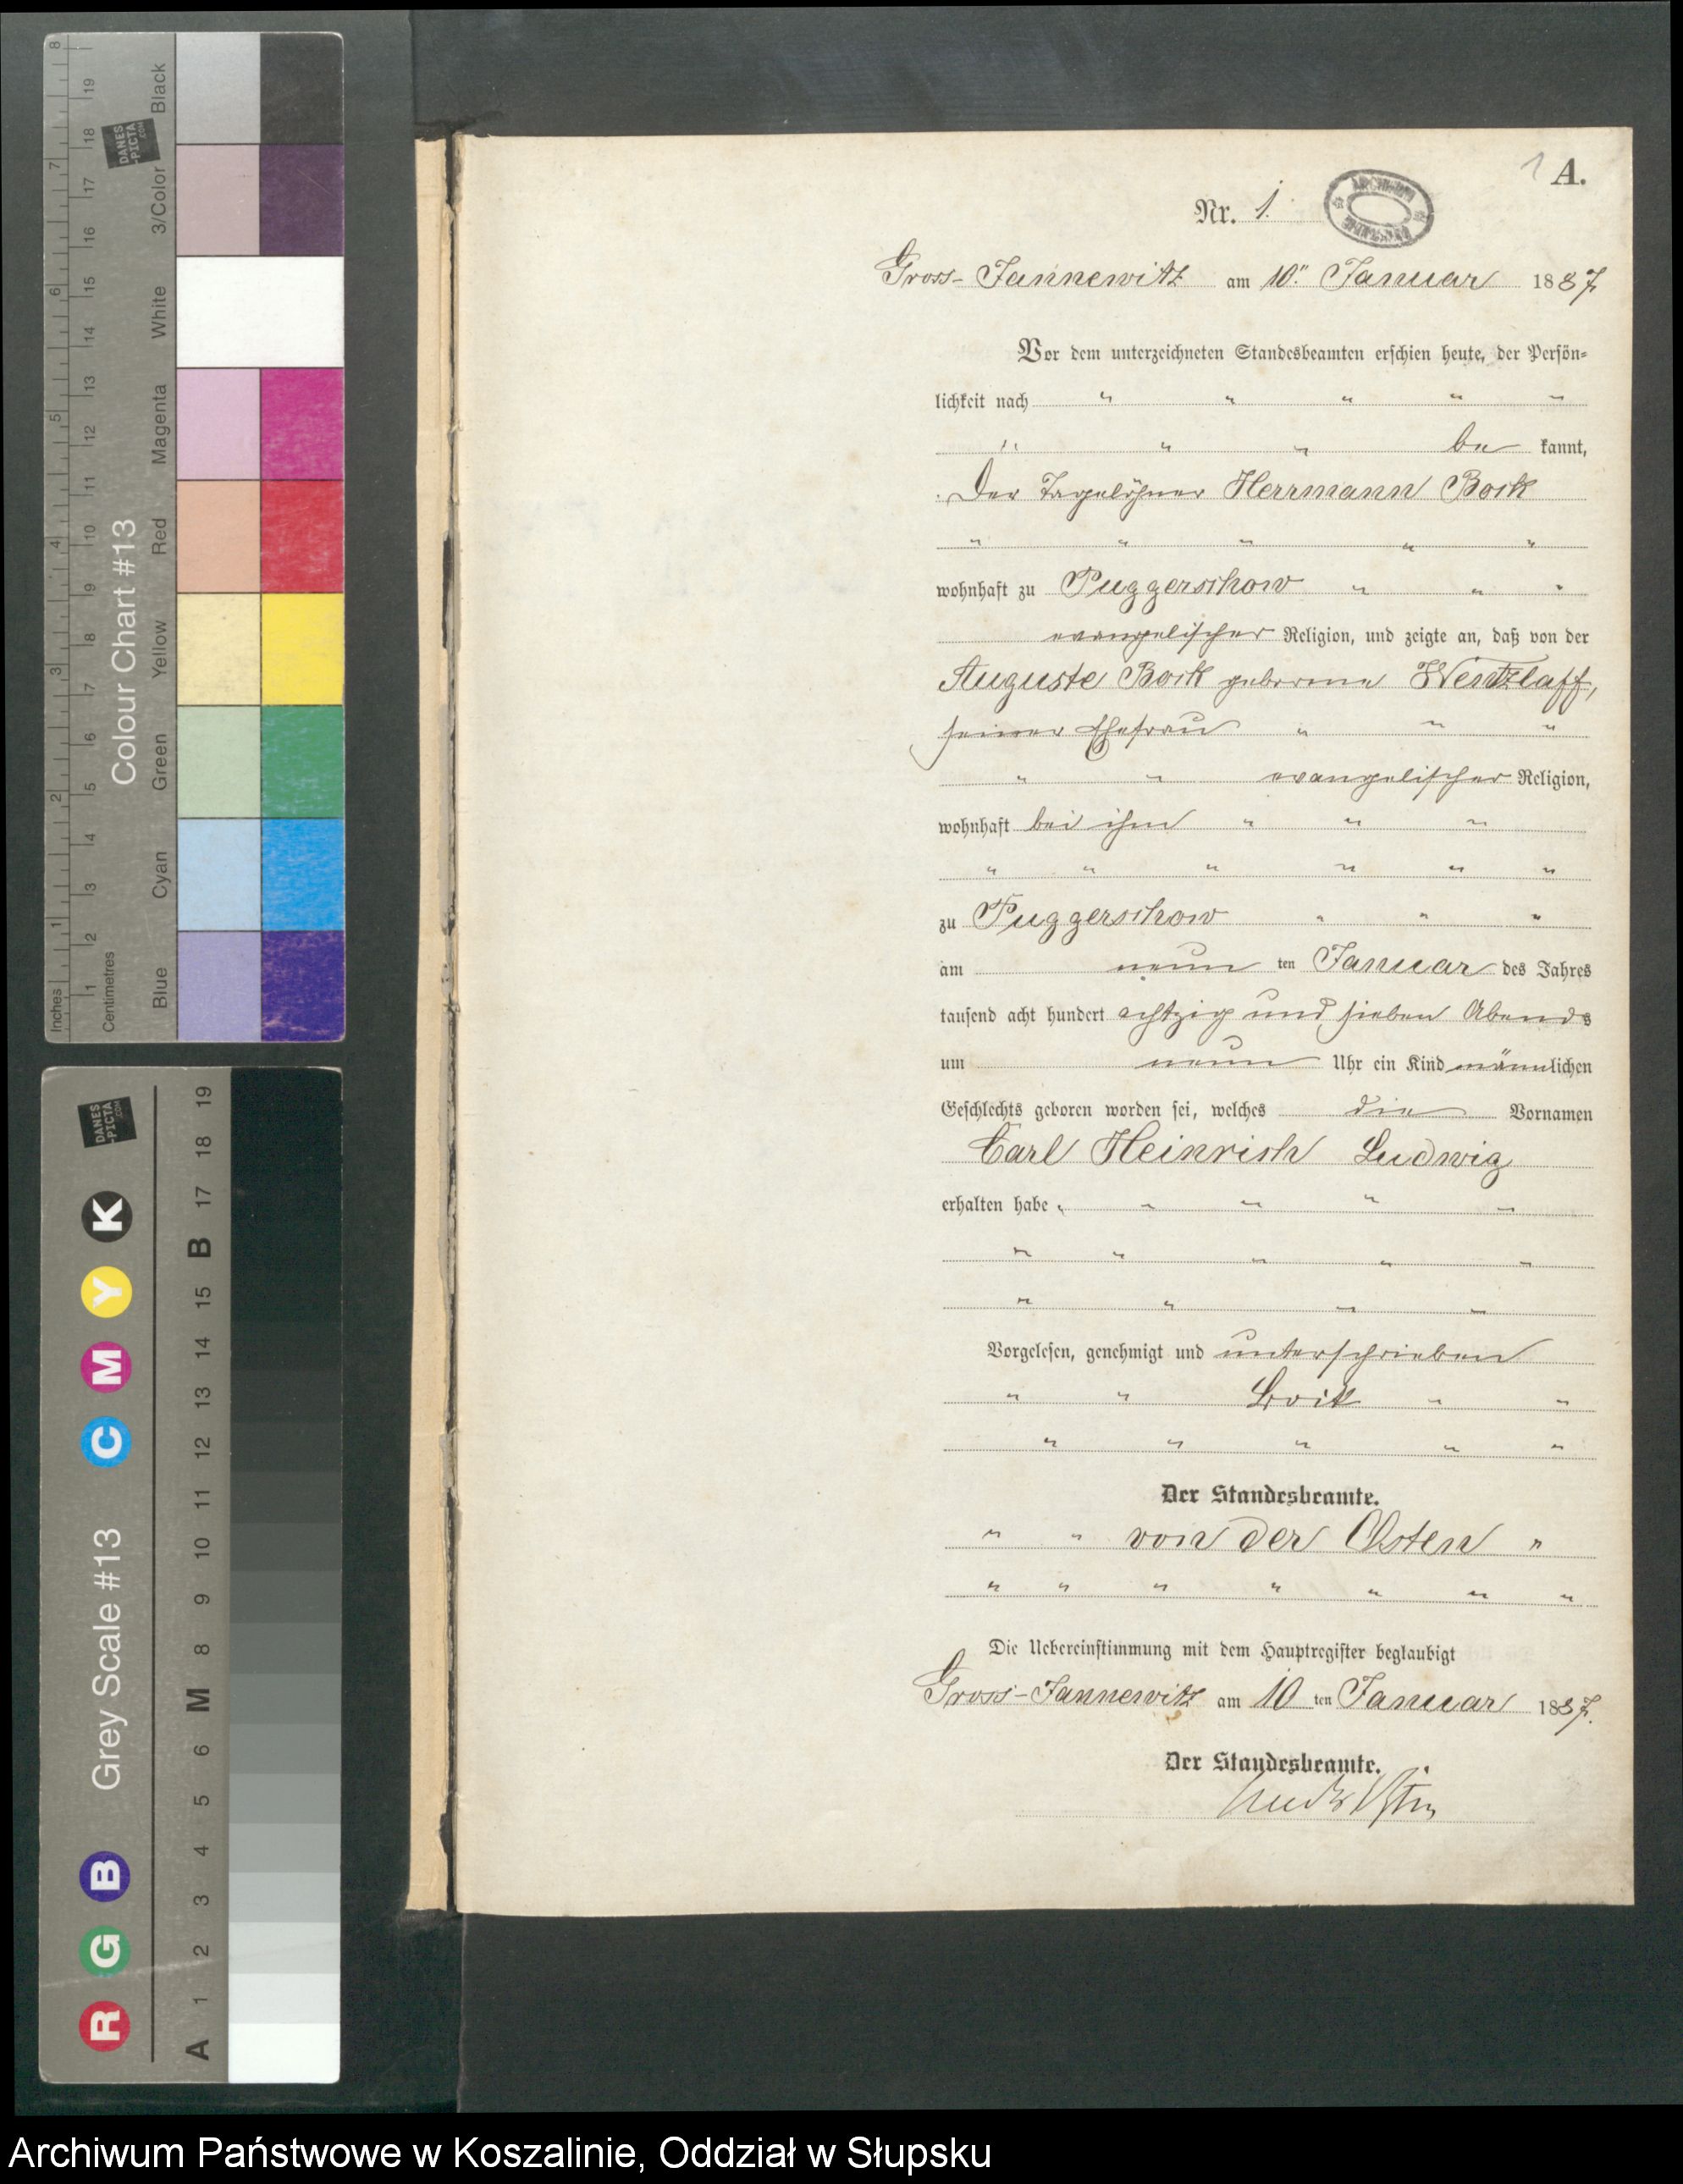 A.
Nr. 1.
Gross-Jannewitz am 10ten Januar 1887
Vor dem unterzeichneten Standesbeamten erschien heute, der Persön=
lichkeit nach
be kannt,
Der Tagelöhner Herrmann Bock
wohnhaft zu Puggerschow
evangelischer Religion, und zeigte an, daß von der
Auguste Bock geborene Wentzlaff,
seiner Ehefrau
evangelischer Religion,
wohnhaft bei ihm
zu Puggerschow
am neun ten Januar des Jahres
tausend acht hundert achtzig und sieben Abends
um neun Uhr ein Kind männlichen
Geschlechts geboren worden sei, welches die Vornamen
Carl Heinrich Ludwig
erhalten habe
Vorgelesen, genehmigt und unterschrieben
Bock
Der Standesbeamte.
von der Osten
Die Uebereinstimmung mit dem Hauptregister beglaubigt
Gross-Jannewitz am 10 ten Januar 1887.
Der Standesbeamte.
Inches 1 2 3 4 5 6 7 8
Centimetres 1 2 3 4 5 6 7 8 9 10 11 12 13 14 15 16 17 18 19
Colour Chart #13
DANES
-PICTA
.COM
Blue Cyan Green Yellow Red Magenta White 3/Color Black
Grey Scale #13
R G B C M Y K
DANES
-PICTA
.COM
A 1 2 3 4 5 6 M 8 9 10 11 12 13 14 15 B 17 18 19
Archiwum Państwowe w Koszalinie, Oddział w Słupsku